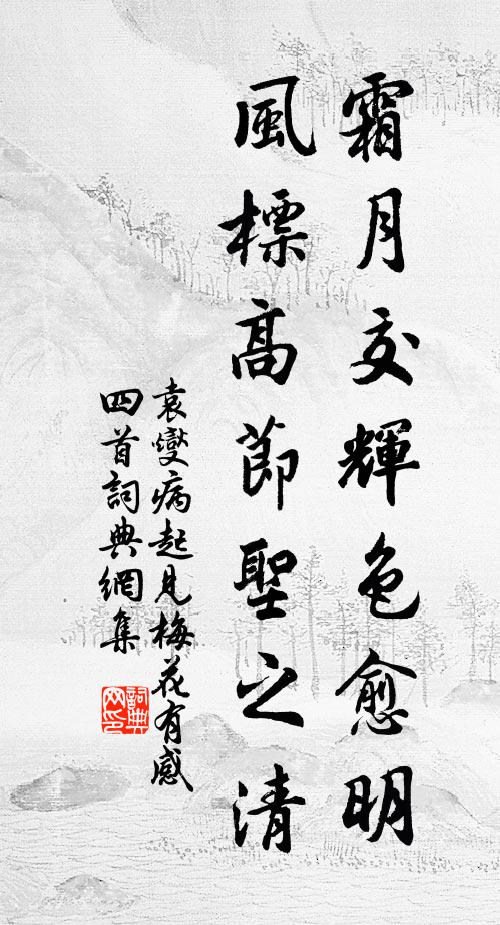 霜月交輝色愈明
風標高節聖之清
袁燮病起見梅花有感
四首詞典網集
詞典
网印